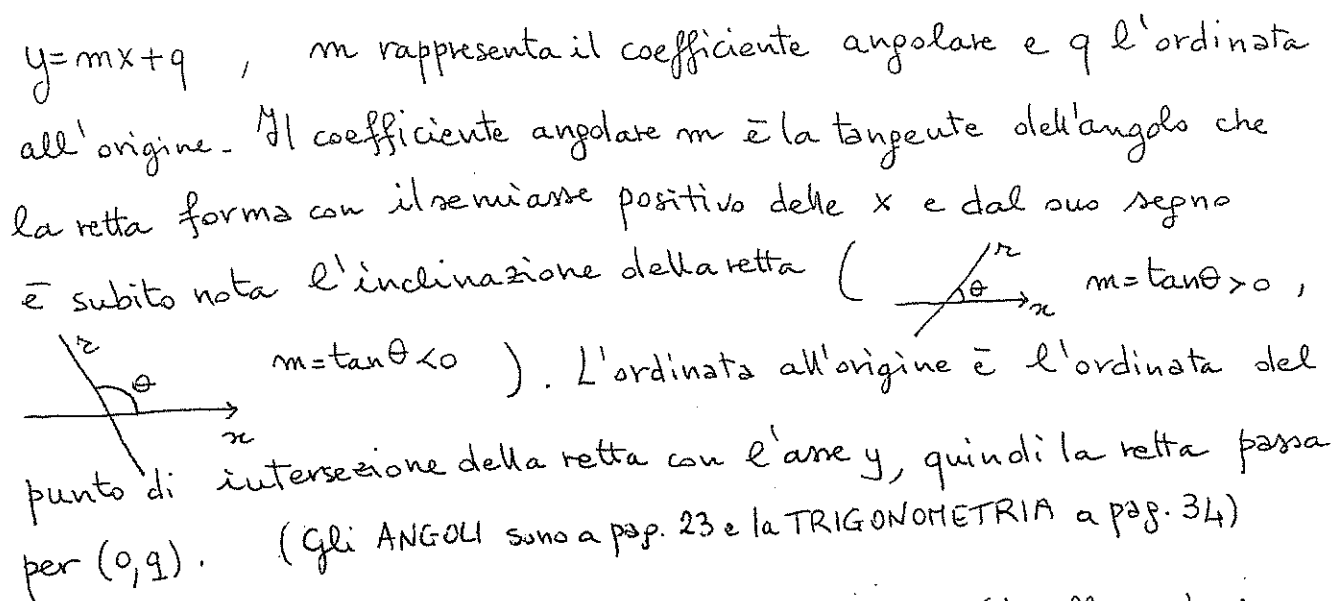 y=mx+q , m rappresenta il coefficiente angolare e q l'ordinata
all'origine. Il coefficiente angolare m è la tangente dell'angolo che
la retta forma con il semiasse positivo delle x e dal suo segno
è subito nota l'inclinazione della retta ( r θ x m=tanθ>0 ,
r θ x m=tanθ<0 ). L'ordinata all'origine è l'ordinata del
punto di intersezione della retta con l'asse y, quindi la retta passa
per (0,q). (Gli ANGOLI sono a pag. 23 e la TRIGONOMETRIA a pag. 34)